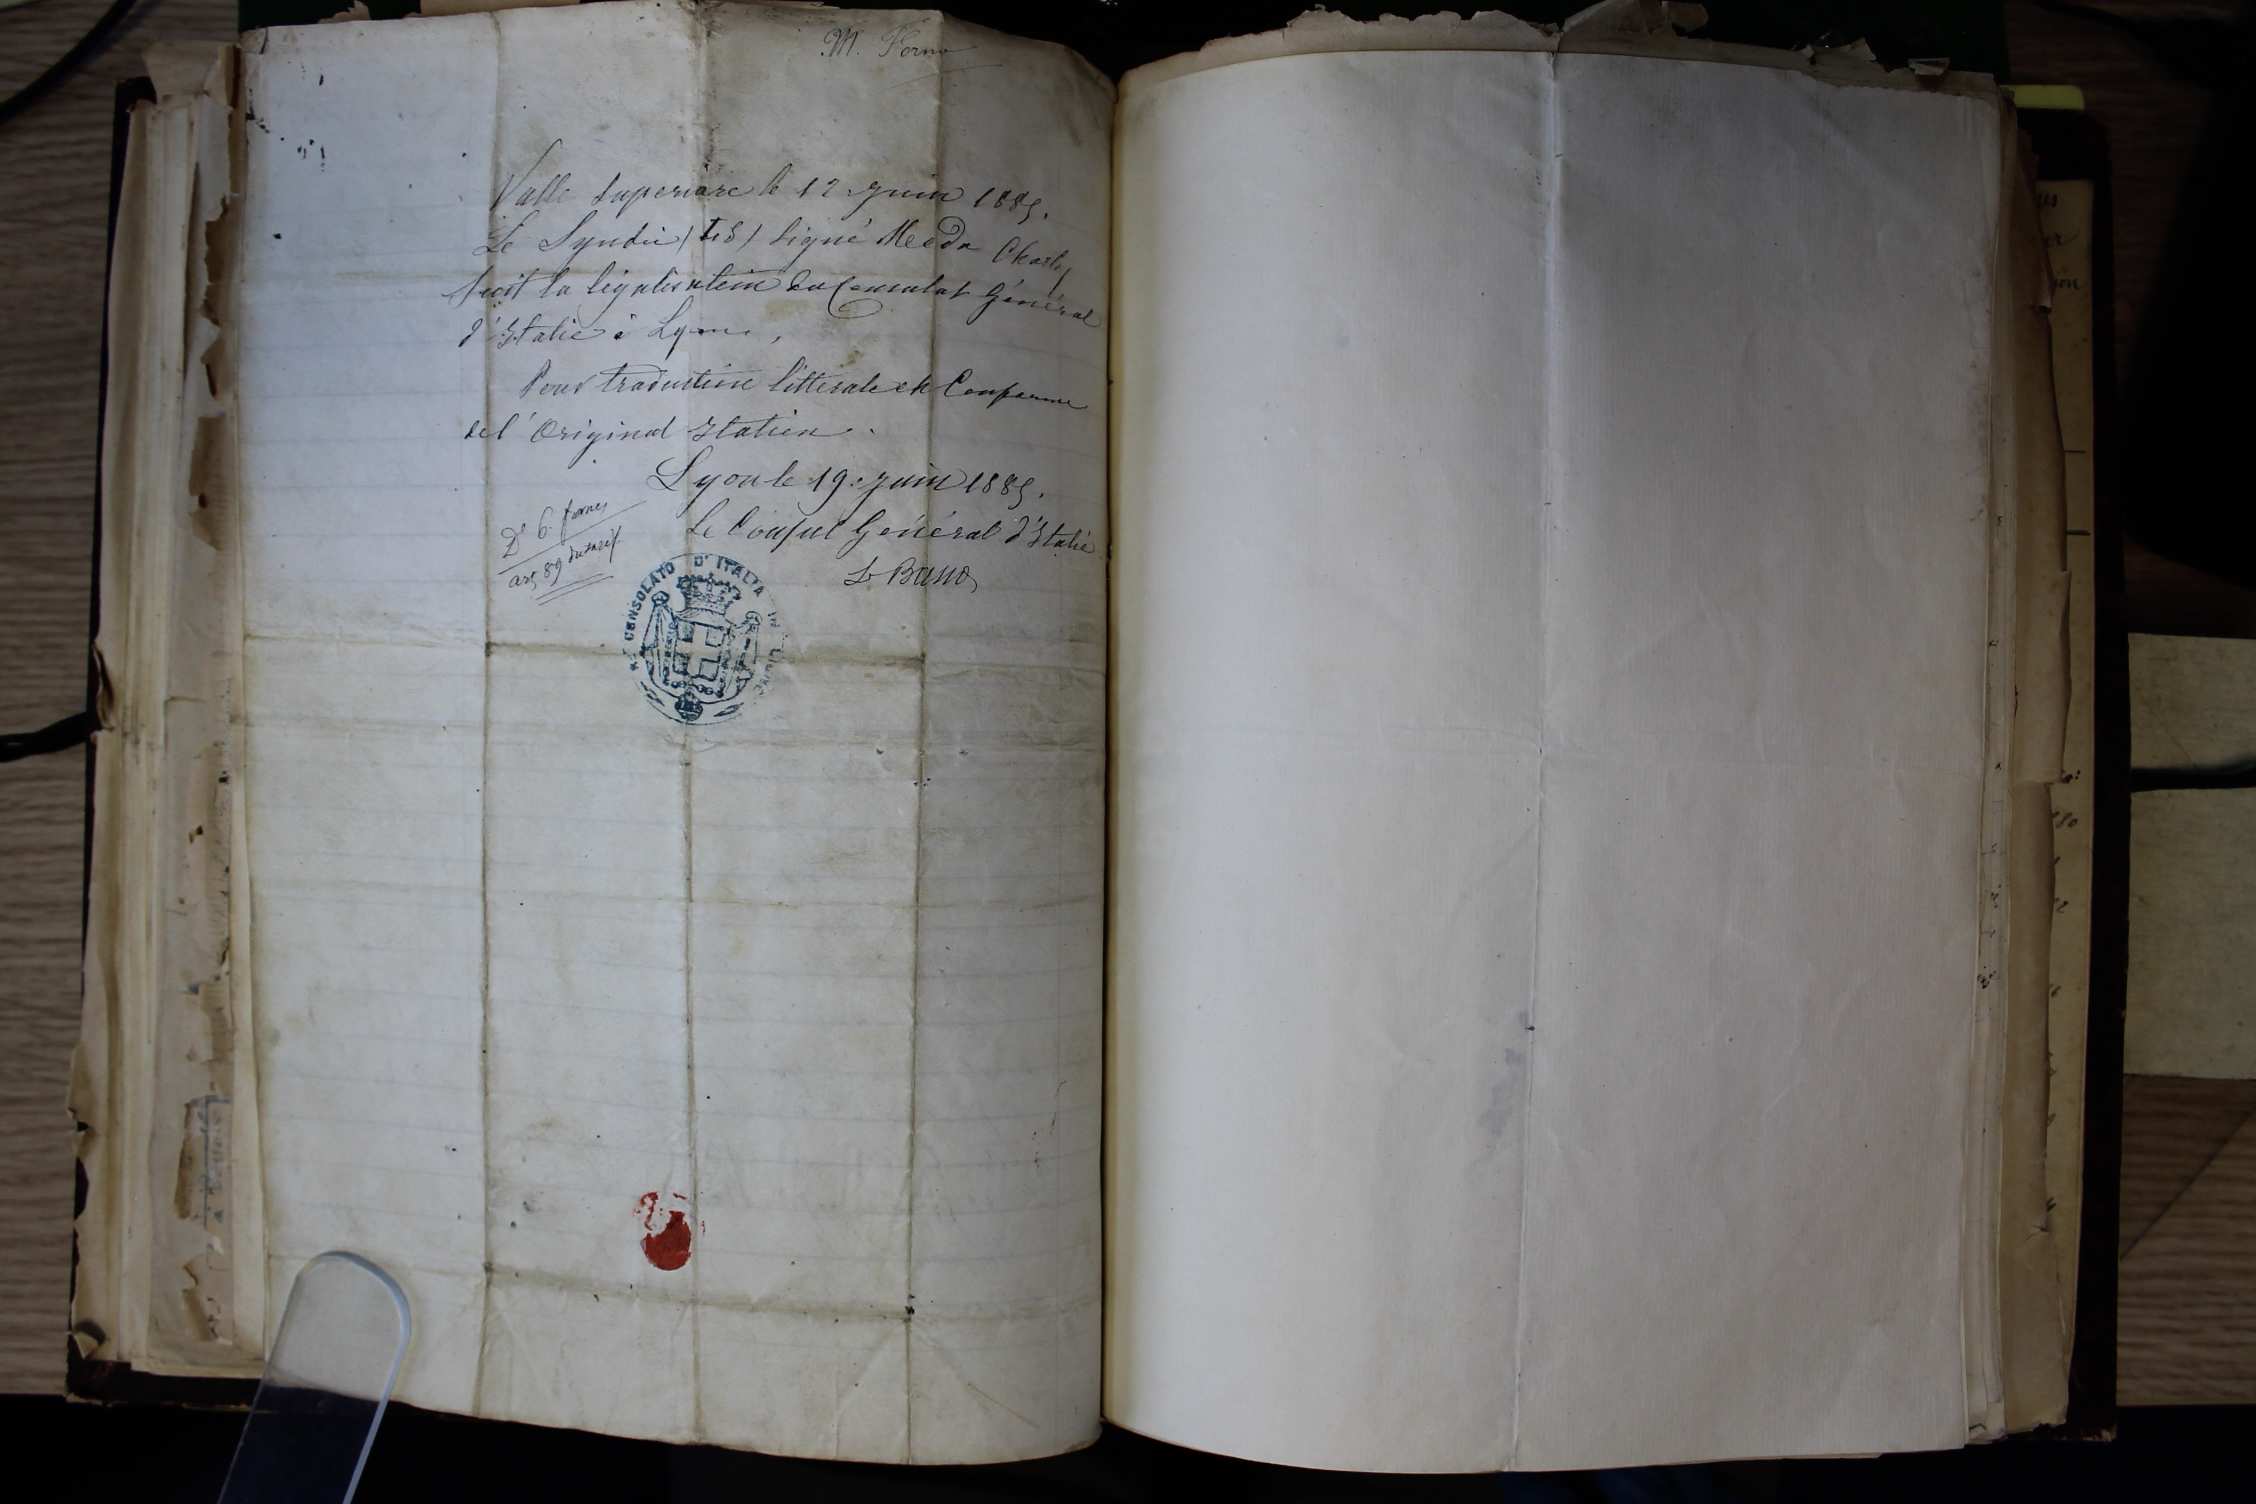 M. Forno
Valle Superiore le 12 Juin 1885.
Le Syndic (LS) signé Meda Charles
suit la légalisation du Consulat Général
d'Italie à Lyon,
Pour traduction littérale et Conforme
de l'Original Italien.
Lyon le 19 Juin 1885.
Le Consul Général d'Italie
L Basso
Dt 6 francs
art 89 du tarif
CONSOLATO D'ITALIA IN LIONE